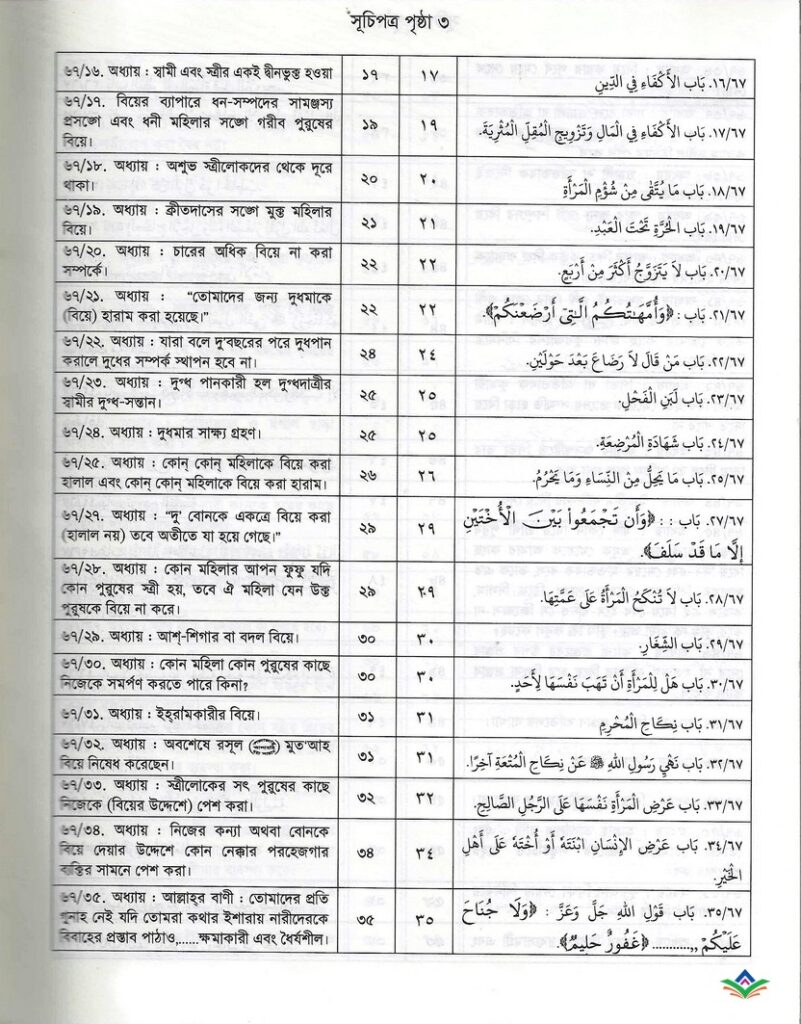 সূচিপত্র পৃষ্ঠা ৩
৬৭/১৬. অধ্যায় : স্বামী এবং স্ত্রীর একই দ্বীনভুক্ত হওয়া ১৭ ١٧ ١٦/٦٧. بَاب الأَكْفَاءِ فِي الدِّينِ
৬৭/১৭. বিয়ের ব্যাপারে ধন-সম্পদের সামঞ্জস্য
প্রসঙ্গে এবং ধনী মহিলার সঙ্গে গরীব পুরুষের
বিয়ে। ১৯ ١٩ ١٧/٦٧. بَاب الأَكْفَاءِ فِي الْمَالِ وَتَزْوِيجِ الْمُقِلِّ الْمُثْرِيَةَ.
৬৭/১৮. অধ্যায় : অশুভ স্ত্রীলোকদের থেকে দূরে
থাকা। ২০ ٢٠ ١٨/٦٧. بَاب مَا يُتَّقَى مِنْ شُؤْمِ الْمَرْأَةِ
৬৭/১৯. অধ্যায় : ক্রীতদাসের সঙ্গে মুক্ত মহিলার
বিয়ে। ২১ ٢١ ١٩/٦٧. بَاب الْحُرَّةِ تَحْتَ الْعَبْدِ.
৬৭/২০. অধ্যায় : চারের অধিক বিয়ে না করা
সম্পর্কে। ২২ ٢٢ ٢٠/٦٧. بَاب لاَ يَتَزَوَّجُ أَكْثَرَ مِنْ أَرْبَعٍ.
৬৭/২১. অধ্যায় : “তোমাদের জন্য দুধমাকে
(বিয়ে) হারাম করা হয়েছে।” ২২ ٢٢ ٢١/٦٧. بَاب : ﴿وَأُمَّهٰتُكُمُ الّٰتِيْٓ أَرْضَعْنَكُمْ﴾.
৬৭/২২. অধ্যায় : যারা বলে দু’বছরের পরে দুধপান
করালে দুধের সম্পর্ক স্থাপন হবে না। ২৪ ٢٤ ٢٢/٦٧. بَاب مَنْ قَالَ لاَ رَضَاعَ بَعْدَ حَوْلَيْنِ.
৬৭/২৩. অধ্যায় : দুগ্ধ পানকারী হল দুগ্ধদাত্রীর
স্বামীর দুগ্ধ-সন্তান। ২৫ ٢٥ ٢٣/٦٧. بَاب لَبَنِ الْفَحْلِ.
৬৭/২৪. অধ্যায় : দুধমার সাক্ষ্য গ্রহণ। ২৫ ٢٥ ٢٤/٦٧. بَاب شَهَادَةِ الْمُرْضِعَةِ.
৬৭/২৫. অধ্যায় : কোন্ কোন্ মহিলাকে বিয়ে করা
হালাল এবং কোন্ কোন্ মহিলাকে বিয়ে করা হারাম। ২৬ ٢٦ ٢٥/٦٧. بَاب مَا يَحِلُّ مِنْ النِّسَاءِ وَمَا يَحْرُمُ.
৬৭/২৭. অধ্যায় : “দু’ বোনকে একত্রে বিয়ে করা
(হালাল নয়) তবে অতীতে যা হয়ে গেছে।” ২৯ ٢٩ ٢٧/٦٧. بَاب : : ﴿وَأَن تَجْمَعُوا۟ بَيْنَ الْأُخْتَيْنِ
إِلَّا مَا قَدْ سَلَفَ﴾.
৬৭/২৮. অধ্যায় : কোন মহিলার আপন ফুফু যদি
কোন পুরুষের স্ত্রী হয়, তবে ঐ মহিলা যেন উক্ত
পুরুষকে বিয়ে না করে। ২৯ ٢٩ ٢٨/٦٧. بَاب لاَ تُنْكَحُ الْمَرْأَةُ عَلَى عَمَّتِهَا.
৬৭/২৯. অধ্যায় : আশ্-শিগার বা বদল বিয়ে। ৩০ ٣٠ ٢٩/٦٧. بَاب الشِّغَارِ.
৬৭/৩০. অধ্যায় : কোন মহিলা কোন পুরুষের কাছে
নিজেকে সমর্পণ করতে পারে কিনা? ৩০ ٣٠ ٣٠/٦٧. بَاب هَلْ لِلْمَرْأَةِ أَنْ تَهَبَ نَفْسَهَا لِأَحَدٍ.
৬৭/৩১. অধ্যায় : ইহ্‌রামকারীর বিয়ে। ৩১ ٣١ ٣١/٦٧. بَاب نِكَاحِ الْمُحْرِمِ
৬৭/৩২. অধ্যায় : অবশেষে রসূল (ﷺ) মুত‘আহ
বিয়ে নিষেধ করেছেন। ৩১ ٣١ ٣٢/٦٧. بَاب نَهْيِ رَسُولِ اللهِ ﷺ عَنْ نِكَاحِ الْمُتْعَةِ آخِرًا.
৬৭/৩৩. অধ্যায় : স্ত্রীলোকের সৎ পুরুষের কাছে
নিজেকে (বিয়ের উদ্দেশে) পেশ করা। ৩২ ٣٢ ٣٣/٦٧. بَاب عَرْضِ الْمَرْأَةِ نَفْسَهَا عَلَى الرَّجُلِ الصَّالِحِ.
৬৭/৩৪. অধ্যায় : নিজের কন্যা অথবা বোনকে
বিয়ে দেয়ার উদ্দেশে কোন নেক্কার পরহেজগার
ব্যক্তির সামনে পেশ করা। ৩৪ ٣٤ ٣٤/٦٧. بَاب عَرْضِ الإِنْسَانِ ابْنَتَهُ أَوْ أُخْتَهُ عَلَى أَهْلِ
الْخَيْرِ.
৬৭/৩৫. অধ্যায় : আল্লাহ্‌র বাণী : তোমাদের প্রতি
গুনাহ নেই যদি তোমরা কথার ইশারায় নারীদেরকে
বিবাহের প্রস্তাব পাঠাও,......ক্ষমাকারী এবং ধৈর্যশীল। ৩৫ ٣٥ ٣٥/٦٧. بَاب قَوْلِ اللهِ جَلَّ وَعَزَّ : ﴿وَلَا جُنَاحَ
عَلَيْكُمْ ,,........... ﴿غَفُورٌ حَلِيمٌ﴾.